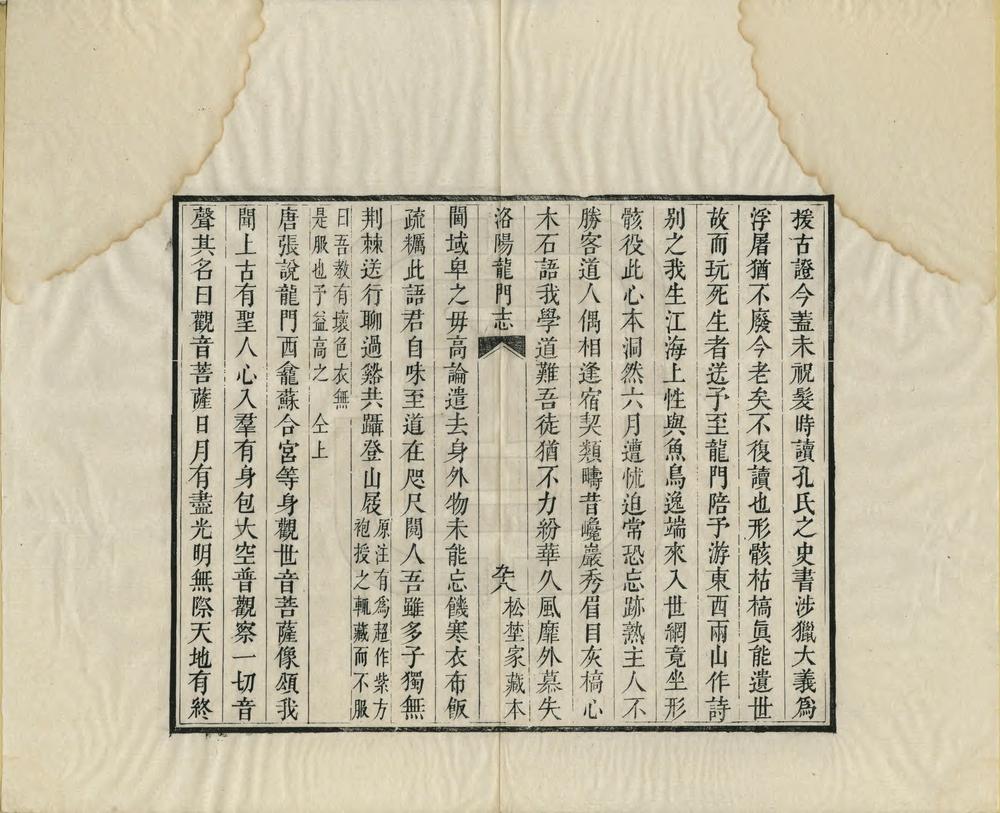 援古證今蓋未祝髮時讀孔氏之史書涉獵大義爲
浮屠猶不廢今老矣不復讀也形骸枯槁眞能遺世
故而玩死生者送予至龍門陪予游東西兩山作詩
别之我生江海上性與魚鳥逸端來入世網竟坐形
骸役此心本洞然六月遭怵迫常恐忘跡熟主人不
勝客道人偶相逢宿契類疇昔巉巖秀眉目灰槁心
木石語我學道難吾徒猶不力紛華久風靡外慕失
洛陽龍門志
卆八
松埜家藏本
閫域卑之毋高論遣去身外物未能忘饑寒衣布飯
疏糲此語君自味至道在咫尺閱人吾雖多子獨無
荆棘送行聊過谿共躡登山屐
原注有爲超作紫方
袍授之輒藏而不服
曰吾教有壞色衣無
是服也予益高之
仝上
唐張說龍門西龕蘇合宮等身觀世音菩薩像頌我
聞上古有聖人心入羣有身包大空普觀察一切音
聲其名曰觀音菩薩日月有盡光明無際天地有終